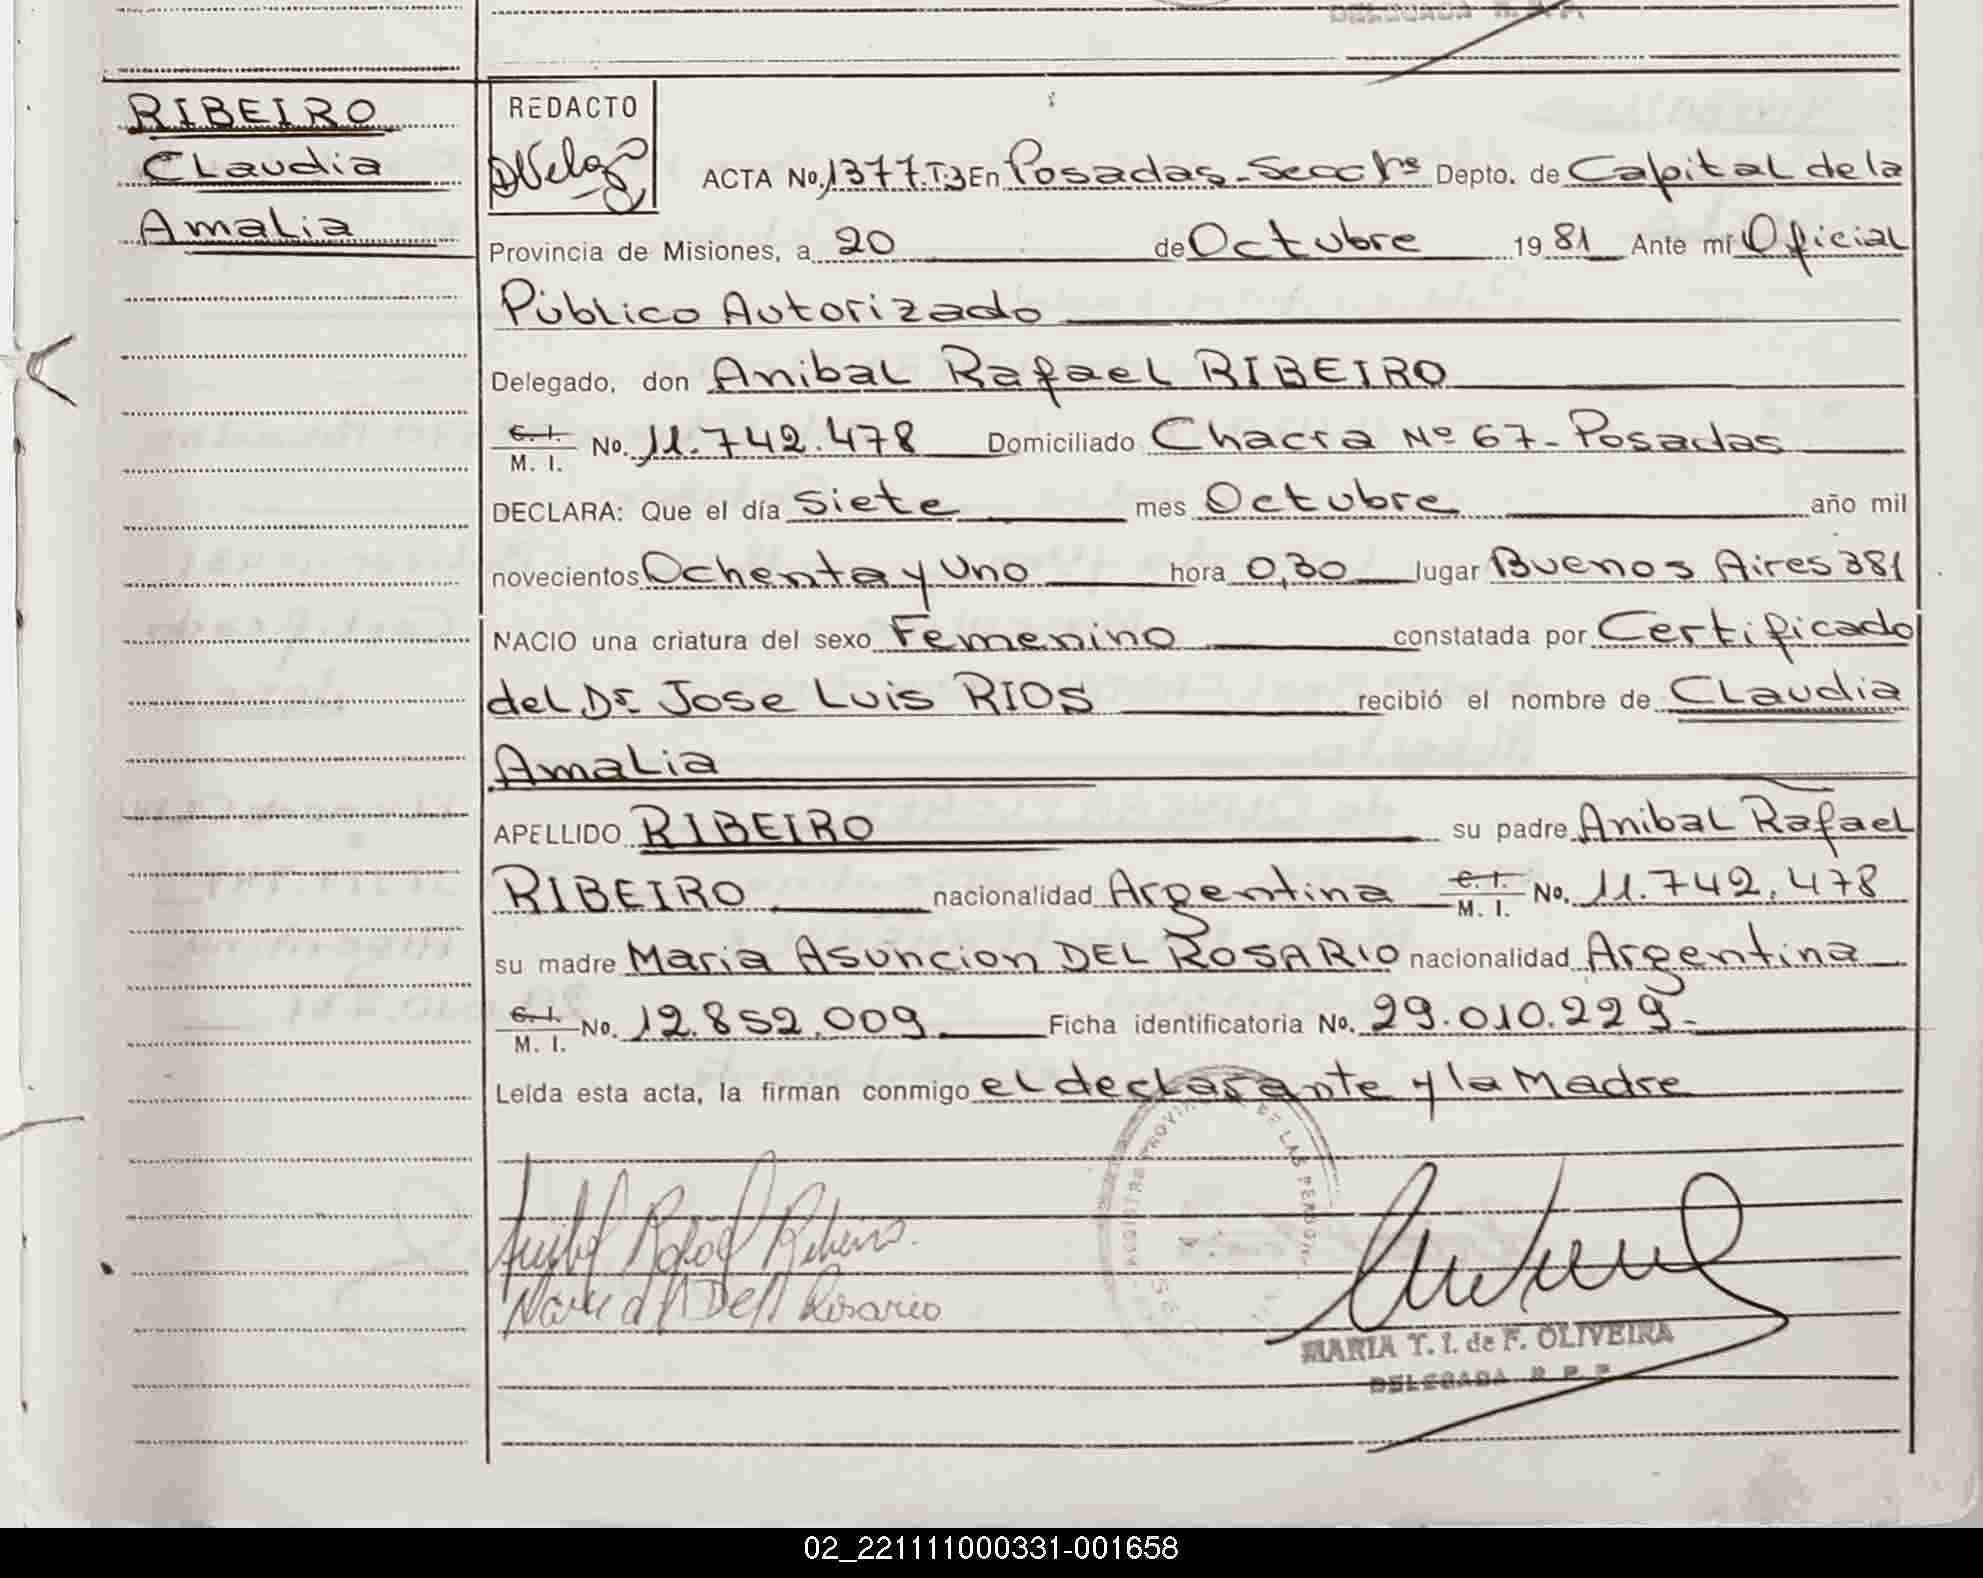 DELEGADA R. P. P.
RIBEIRO
Claudia
Amalia
REDACTO
ACTA No. 1377.T.3 En Posadas-Secc 1ra Depto. de Capital de la
Provincia de Misiones, a 20 de Octubre 19 81 Ante mí Oficial
Público Autorizado
Delegado, don Anibal Rafael RIBEIRO
C. I.
M. I. No. 11.742.478 Domiciliado Chacra Nº 67-Posadas
DECLARA: Que el día siete mes Octubre año mil
novecientos Ochenta y Uno hora 0,30 lugar Buenos Aires 381
NACIO una criatura del sexo Femenino constatada por Certificado
del Dr. Jose Luis RIOS recibió el nombre de Claudia
Amalia
APELLIDO RIBEIRO su padre Anibal Rafael
RIBEIRO nacionalidad Argentina C. I.
M. I. No. 11.742.478
su madre Maria Asuncion DEL ROSARIO nacionalidad Argentina
C. I.
M. I. No. 12.852.009 Ficha identificatoria No. 29.010.229-
Leída esta acta, la firman conmigo el declarante y la Madre
Anibal Rafael Ribeiro.
Maria A Del Rosario
MARIA T. I. de F. OLIVEIRA
DELEGADA R. P. P.
02_221111000331-001658